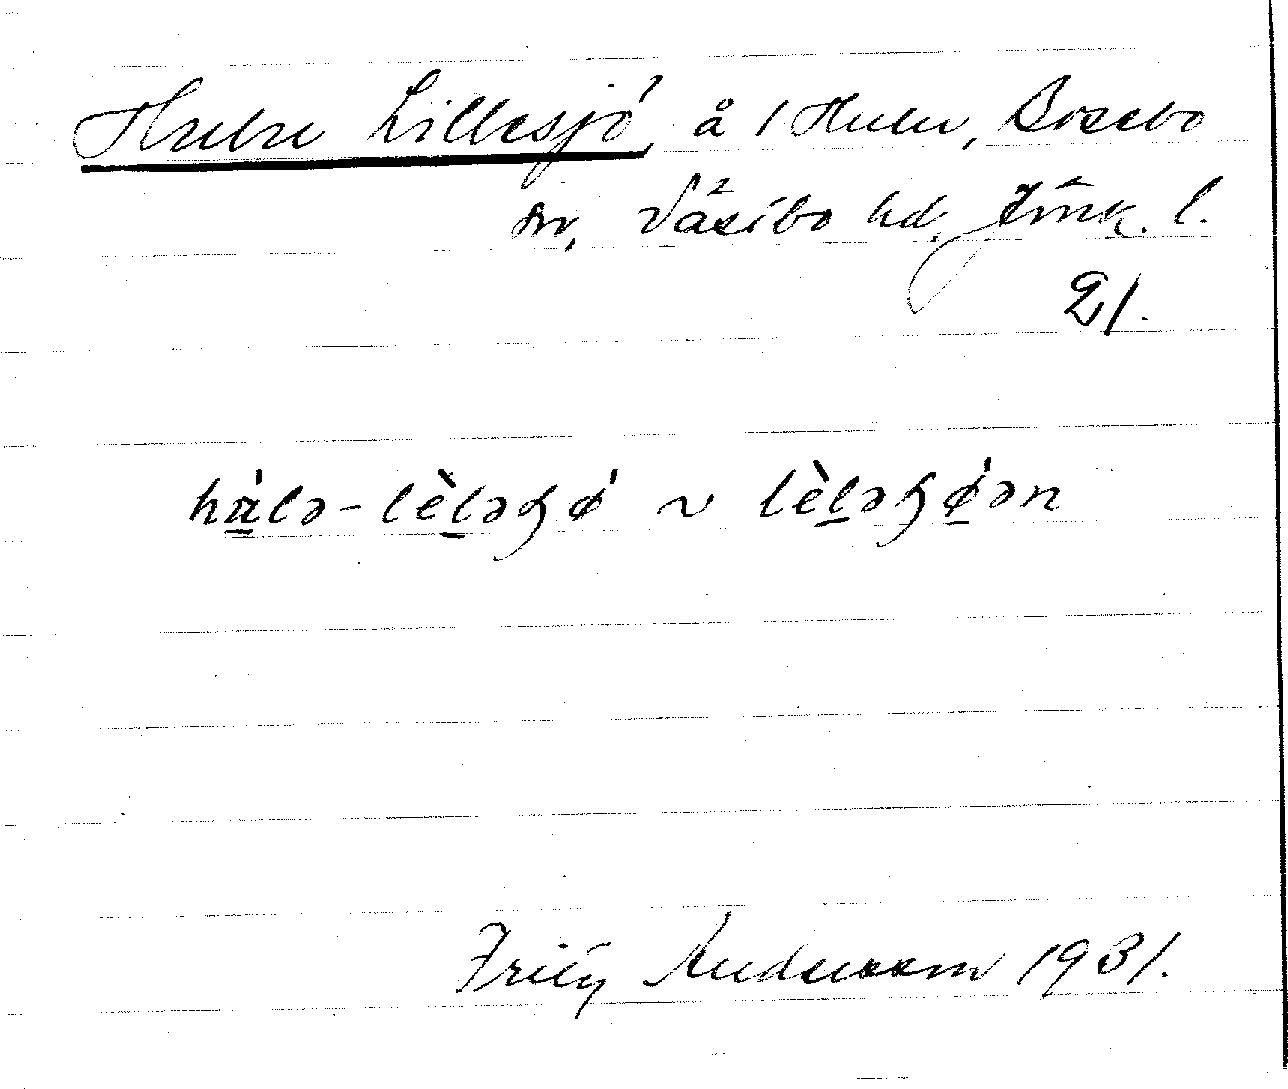 Hulu Lillesjö, å 1 Hulu, Bosebo
sn, Västbo hd. Jönk. l.
21.
hàlə-lèləʒǿ ~ lèləʒǿən
Fritz Andersson 1931.